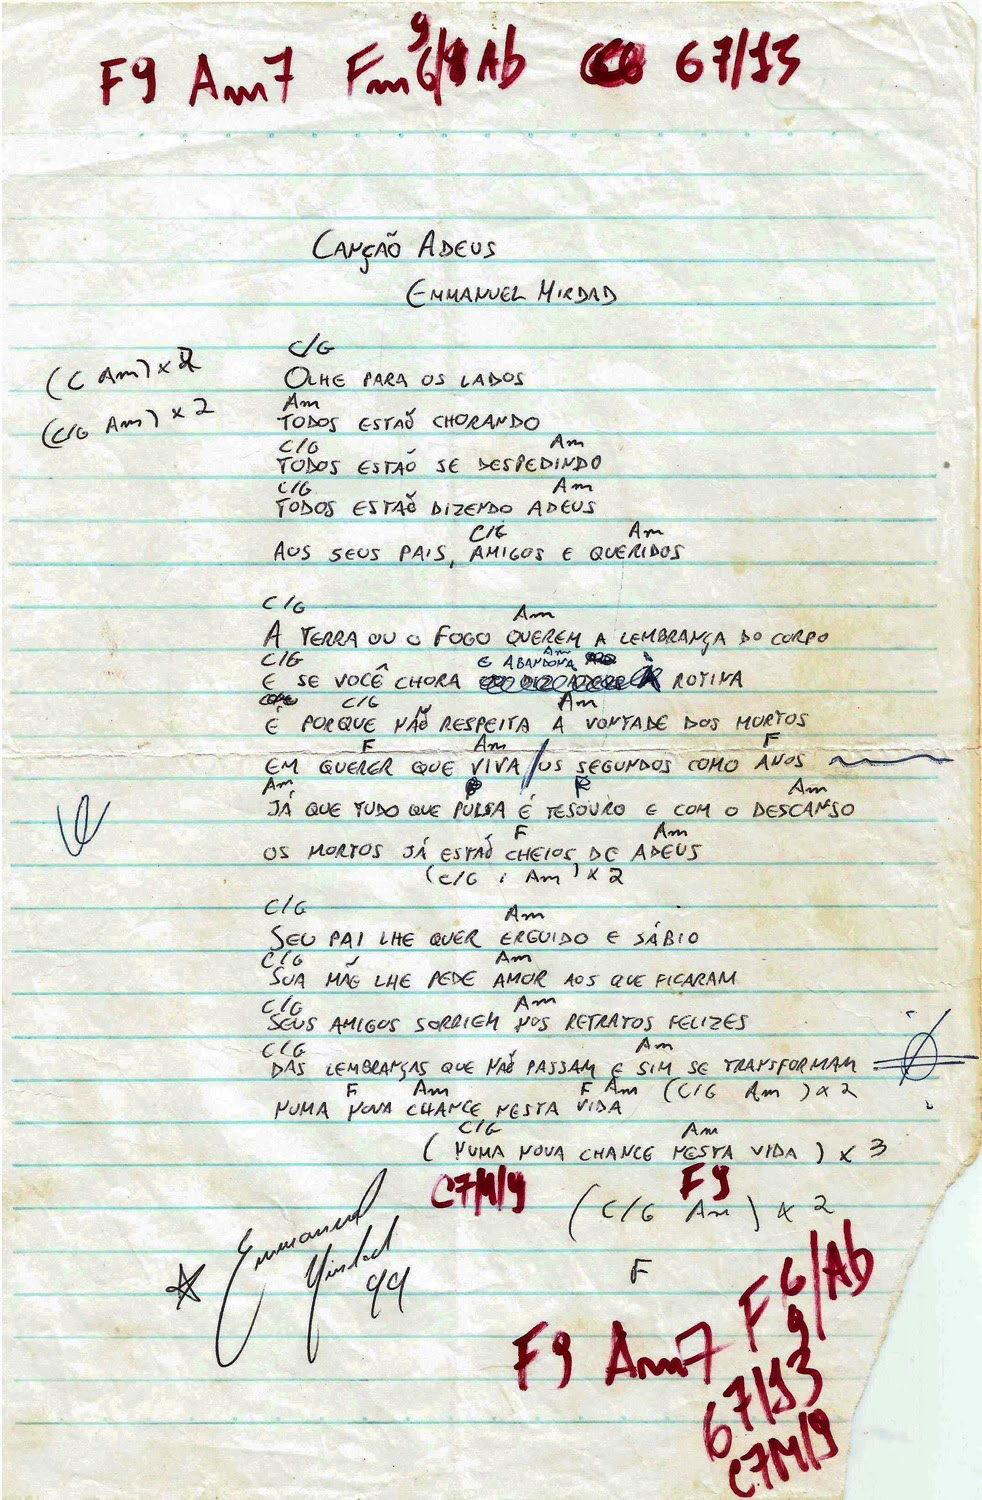 F9 Am7 Fm 6/9/Ab G7/13
CANÇÃO ADEUS
EMMANUEL MIRDAD
(C Am) x 2
(C/G Am) x 2
C/G
OLHE PARA OS LADOS
Am
TODOS ESTÃO CHORANDO
C/G Am
TODOS ESTÃO SE DESPEDINDO
C/G Am
TODOS ESTÃO DIZENDO ADEUS
C/G Am
AOS SEUS PAIS, AMIGOS E QUERIDOS
C/G Am
A TERRA OU O FOGO QUEREM A LEMBRANÇA DO CORPO
C/G Am
E SE VOCÊ CHORA E ABANDONA A ROTINA
C/G Am
É PORQUE NÃO RESPEITA A VONTADE DOS MORTOS
F Am F
EM QUERER QUE VIVA / OS SEGUNDOS COMO ANOS
Am F Am
JÁ QUE TUDO QUE PULSA É TESOURO E COM O DESCANSO
F Am
OS MORTOS JÁ ESTÃO CHEIOS DE ADEUS
(C/G Am) x 2
C/G Am
SEU PAI LHE QUER ERGUIDO E SÁBIO
C/G Am
SUA MÃE LHE PEDE AMOR AOS QUE FICARAM
C/G Am
SEUS AMIGOS SORRIEM NOS RETRATOS FELIZES
C/G Am
DAS LEMBRANÇAS QUE NÃO PASSAM E SIM SE TRANSFORMAM
F Am F Am (C/G Am) x 2
NUMA NOVA CHANCE NESTA VIDA
C/G Am
(NUMA NOVA CHANCE NESTA VIDA) x 3
C7M/9 F9
(C/G Am) x 2
F
Emmanuel
Mirdad
99
F9 Am7 F 6/9/Ab
G7/13
C7M/9